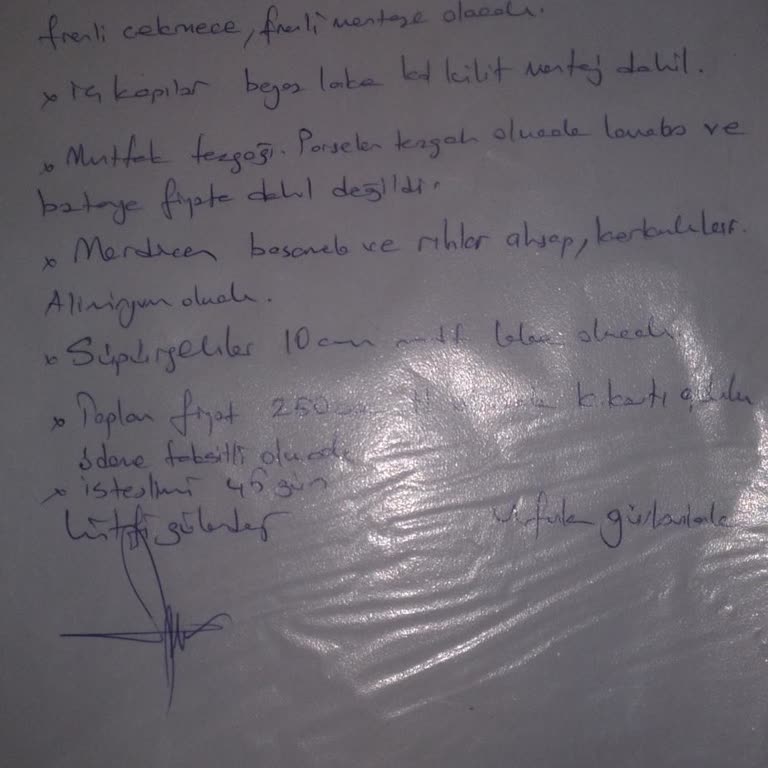 frenli çekmece, frenli menteşe olacak.
x iç kapılar beyaz lake kol kilit montaj dahil.
x Mutfak tezgağı. Porselen tezgah olucak lavabo ve
batarye fiyata dahil değildir.
x Merdiven basamak ve rıhlar ahşap, korkuluklar.
Aliminyum olucak.
x Süpürgelikler 10 cm mdf lake olucak.
x Toplam fiyat k.kartı
ödeme taksitli olucak
x iş teslimi 45 gün
Lütfi